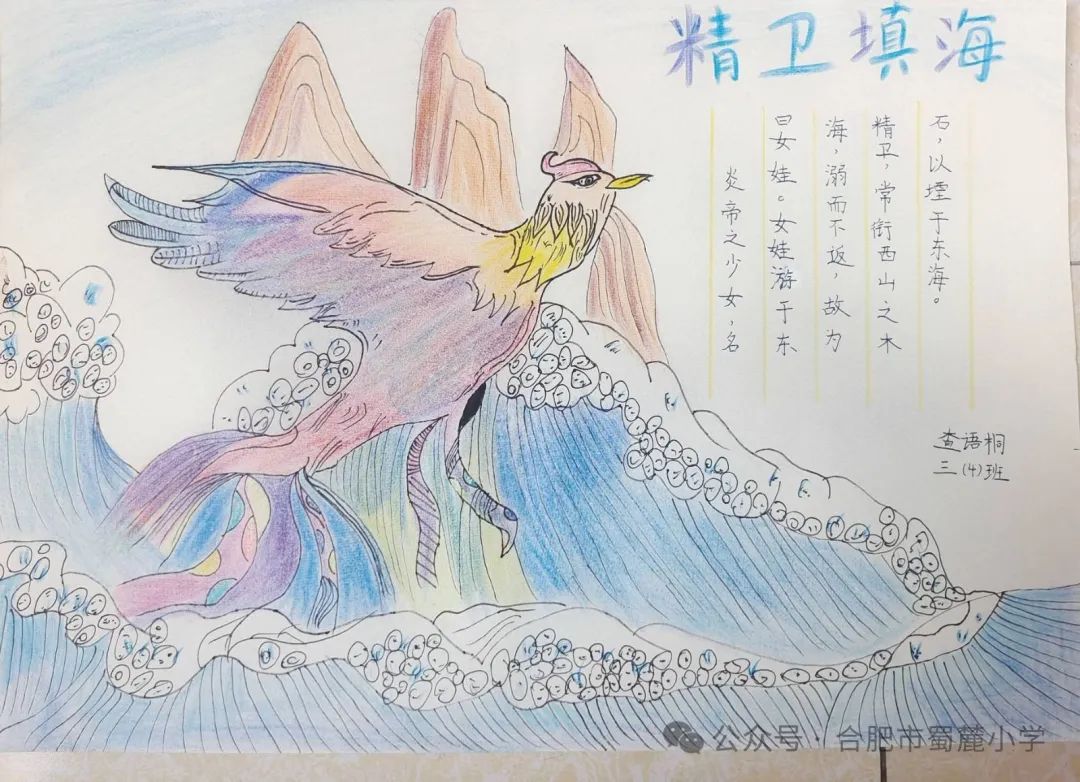 精卫填海
炎帝之少女，名
曰女娃。女娃游于东
海，溺而不返，故为
精卫，常衔西山之木
石，以堙于东海。
查语桐
三(4)班
公众号·合肥市蜀麓小学